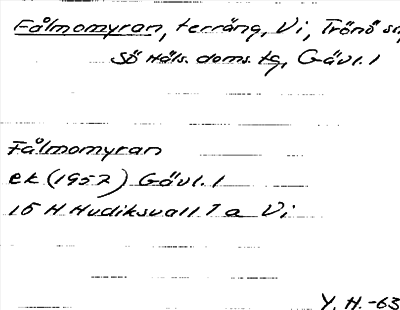 Fålmomyran, terräng, Vi, Trönö sn,
Sö Häls. doms. tg, Gävl. l
Fålmomyran
ek (1957) Gävl. l
16 H Hudiksvall 7 a Vi
Y. H. -63